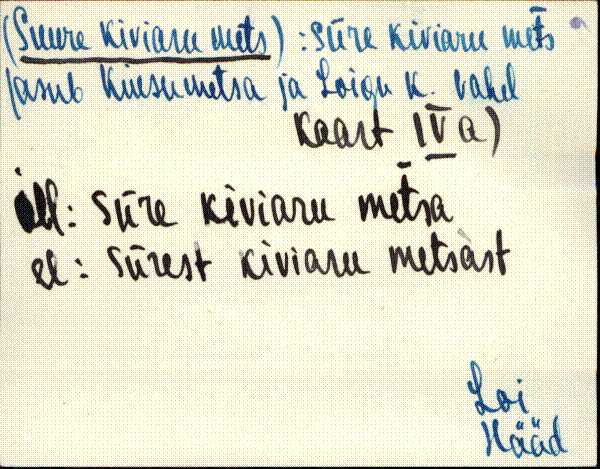 (Suure kiviaru mets) : sūre kiviaru met̄s
(asub Kiusumetsa ja Loigu k. vahel
kaart IV a)
ill: sūre kiviaru met̀sa
el: sūrest kiviaru metsàst
Loi
Hääd